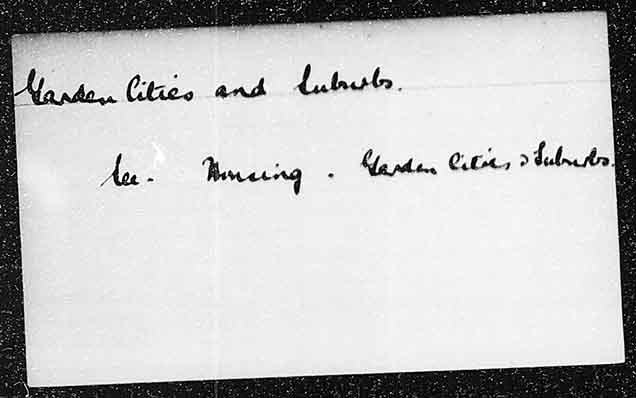 Garden Cities and Suburbs.
See. Housing. Garden Cities & Suburbs.